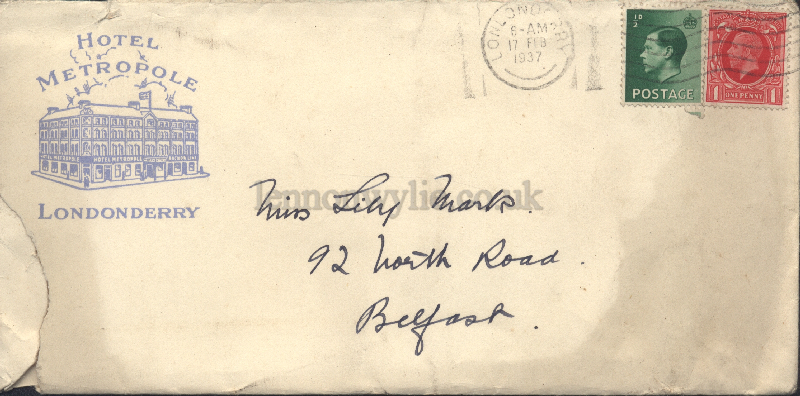 HOTEL
METROPOLE
HOTEL METROPOLE
LONDONDERRY
LONDONDERRY
17 FEB
1937
1D
2
POSTAGE
1 ONE PENNY 1
lennonwylie.co.uk
Miss Lily Marks.
92 North Road.
Belfast.